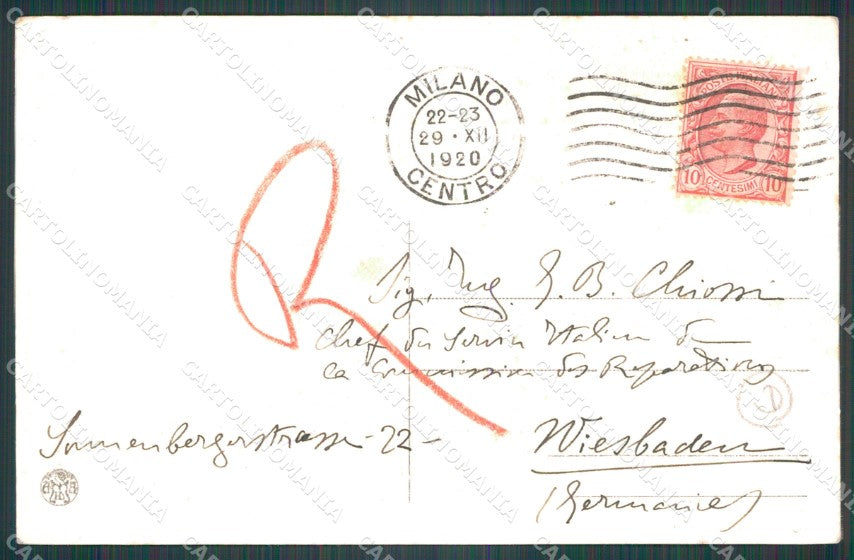 MILANO
22-23
29 · XII
1920
CENTRO
POSTE ITALIANE
10 CENTESIMI 10
R
Sig. Ing. G. B. Chiossi
Chef du Service Italien de
la Commission des Reparations
Sonnenbergerstrasse - 22 -
Wiesbaden
(Germania)
D
CARTOLINOMANIA